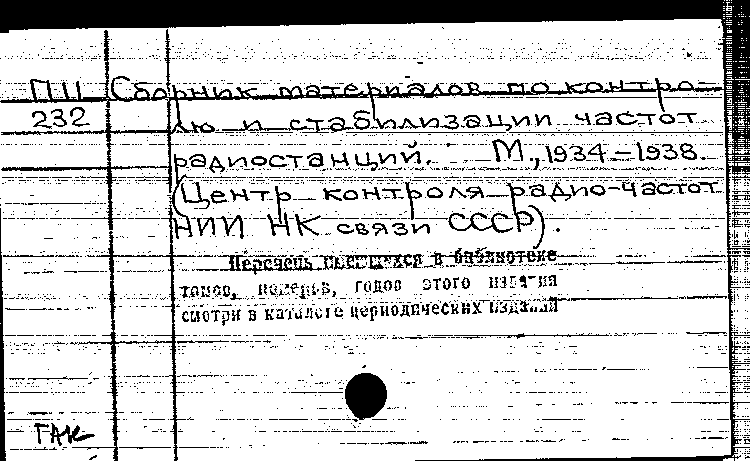 ПЦ Сборник материалов по контро-
232 лю и стабилизации частот
радиостанций. М., 1934–1938.
(Центр контроля радио-частот
НИИ НК связи СССР).
Перечень имеющихся в библиотеке
томов, номеров, годов этого издания
смотри в каталоге периодических изданий
ГАК